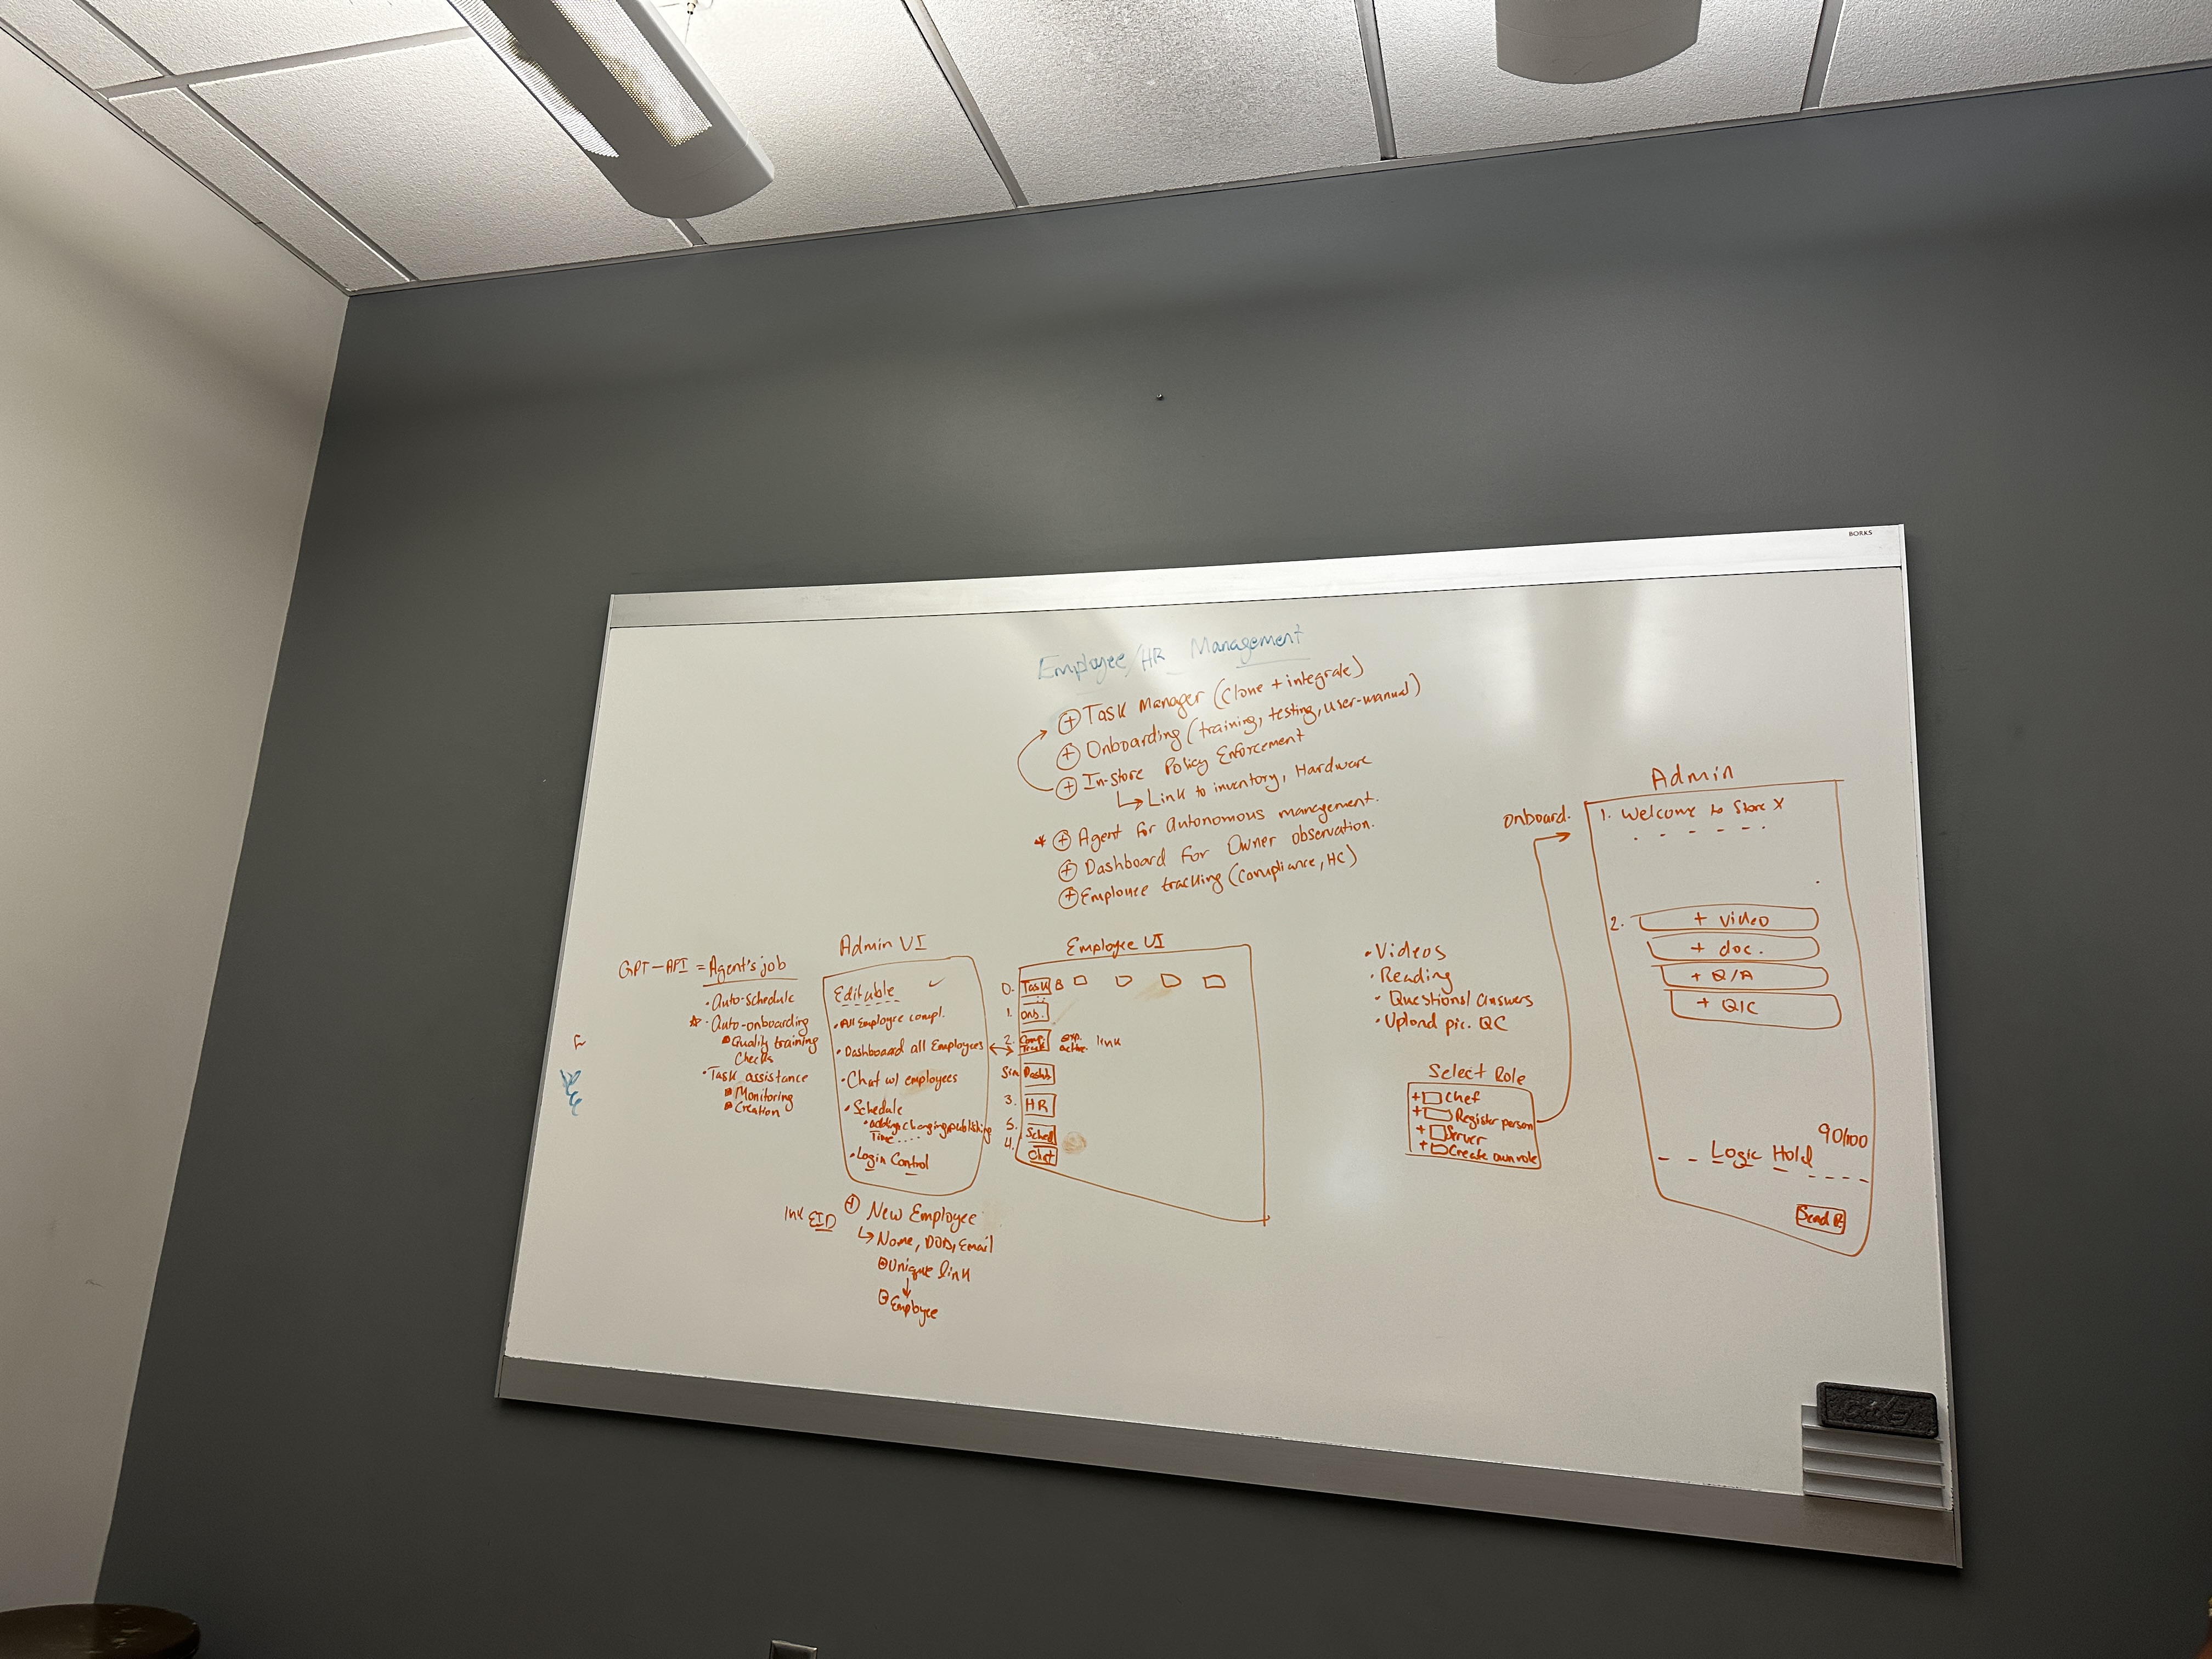 BORKS
Employee/HR Management
+ Task Manager (clone + integrate)
+ Onboarding (training, testing, user-manual)
+ In-store Policy Enforcement
↳ Link to inventory, Hardware
* + Agent for Autonomous management.
+ Dashboard for Owner observation.
+ Employee tracking (compliance, HC)
GPT-API = Agent's job
• Auto-schedule
☆ • Auto-onboarding
Quality training
Checks
• Task assistance
Monitoring
Creation
Admin UI
Editable ✓
• All Employee compl.
• Dashboard all Employees
• Chat w/ employees
• Schedule
• adding, changing, publishing
Time ....
• Login Control
EID
+ New Employee
↳ Name, DOB, Email
Unique link
↓
Employee
Employee UI
0. Task B
1. Onb.
2. Comp. Track exp. active. link
Dashb
3. HR
5. Sched
4. Chat
• Videos
• Reading
• Questions/Answers
• Upload pic. QC
Select Role
+ Chef
+ Register person
+ Server
+ Create own role
onboard.
Admin
1. Welcome to Store X
2. + Video
+ doc.
+ Q/A
+ Q/C
90/100
Logic Hold
Send